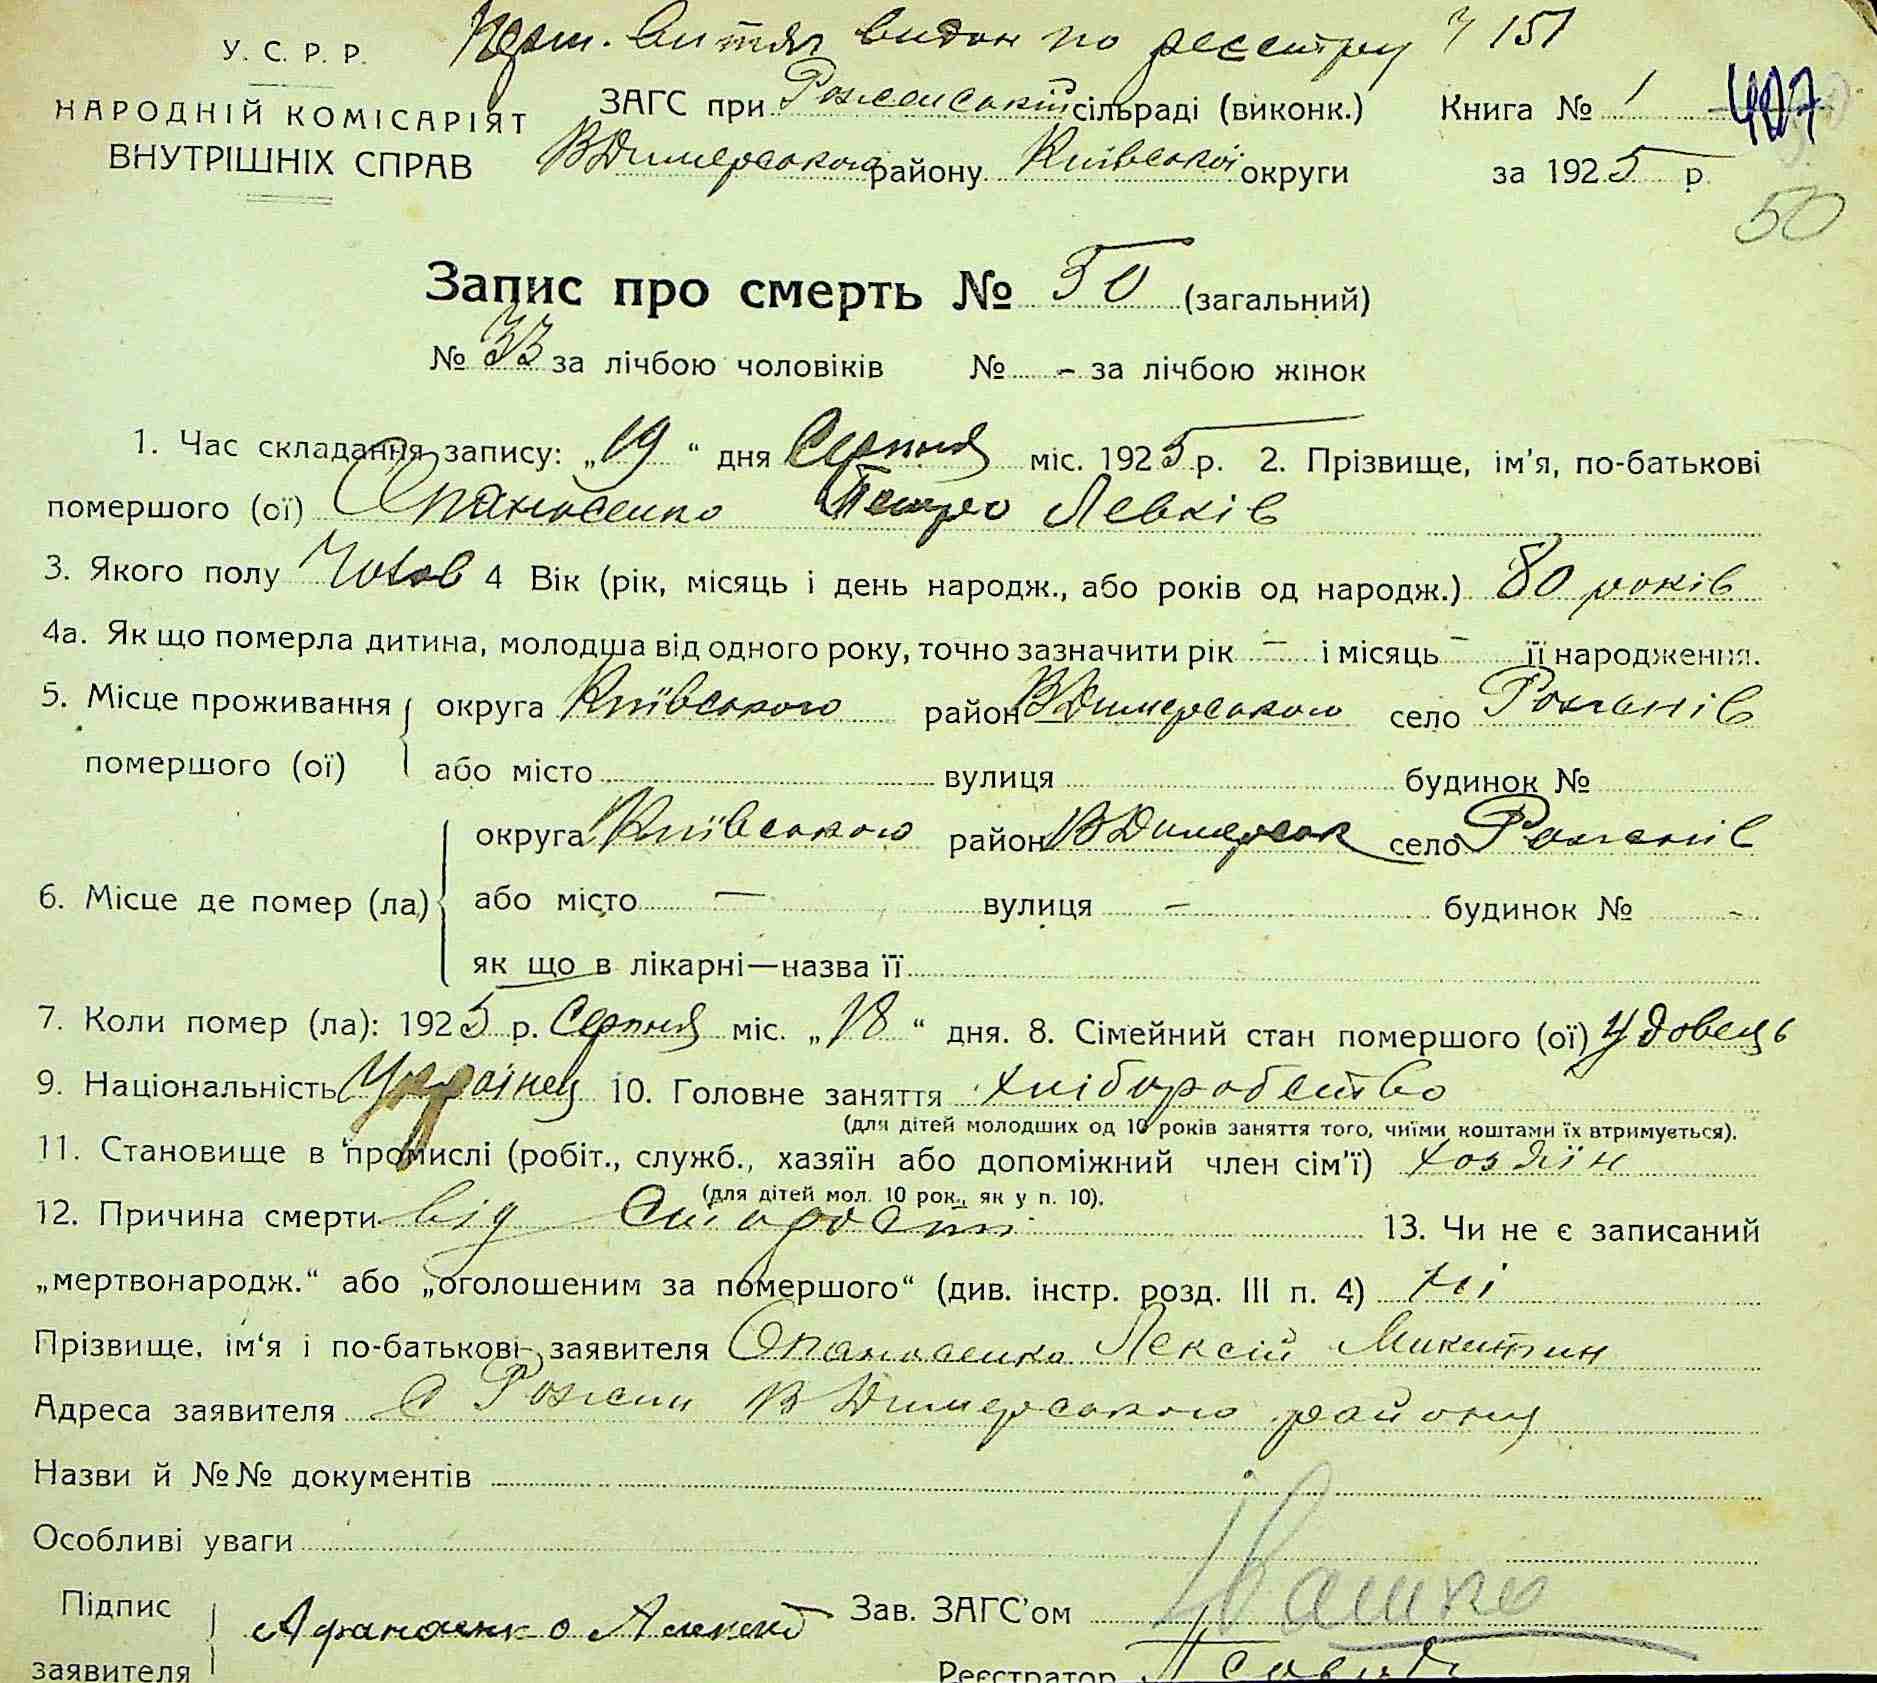 витяг видан по реєстру № 151
У. С. Р. Р.
НАРОДНІЙ КОМІСАРІЯТ
ВНУТРІШНІХ СПРАВ
ЗАГС при Роженській сільраді (виконк.)
В Димерського району Київської округи
Книга № 1 407
за 1925 р.
50
Запис про смерть № 50 (загальний)
№ 33 за лічбою чоловіків № - за лічбою жінок
1. Час складання запису: „19“ дня Серпня міс. 1925 р. 2. Прізвище, ім'я, по-батькові
помершого (ої) Опанасенко Петро Левків
3. Якого полу Чолов 4 Вік (рік, місяць і день народж., або років од народж.) 80 років
4а. Як що померла дитина, молодша від одного року, точно зазначити рік — і місяць - її народження.
5. Місце проживання помершого (ої) округа Київського район В Димерського село Рожнів
або місто вулиця будинок №
6. Місце де помер (ла) округа Київського район В Димерськ село Рожнів
або місто — вулиця - будинок № -
як що в лікарні—назва її
7. Коли помер (ла): 1925 р. Серпня міс. „18“ дня. 8. Сімейний стан помершого (ої) удовець
9. Національність Українец 10. Головне заняття хліборобство
(для дітей молодших од 10 років заняття того, чиїми коштами їх втримується).
11. Становище в промислі (робіт., служб., хазяїн або допоміжний член сім'ї) хозяїн
(для дітей мол. 10 рок., як у п. 10).
12. Причина смерти від старости 13. Чи не є записаний
„мертвонародж.“ або „оголошеним за помершого“ (див. інстр. розд. III п. 4) ні
Прізвище, ім'я і по-батькові заявителя Опанасенко Лексій Микитин
Адреса заявителя с Рожни В Димерського району
Назви й №№ документів
Особливі уваги
Підпис заявителя Афанасенко Алексей
Зав. ЗАГС'ом Івашко
Реєстратор